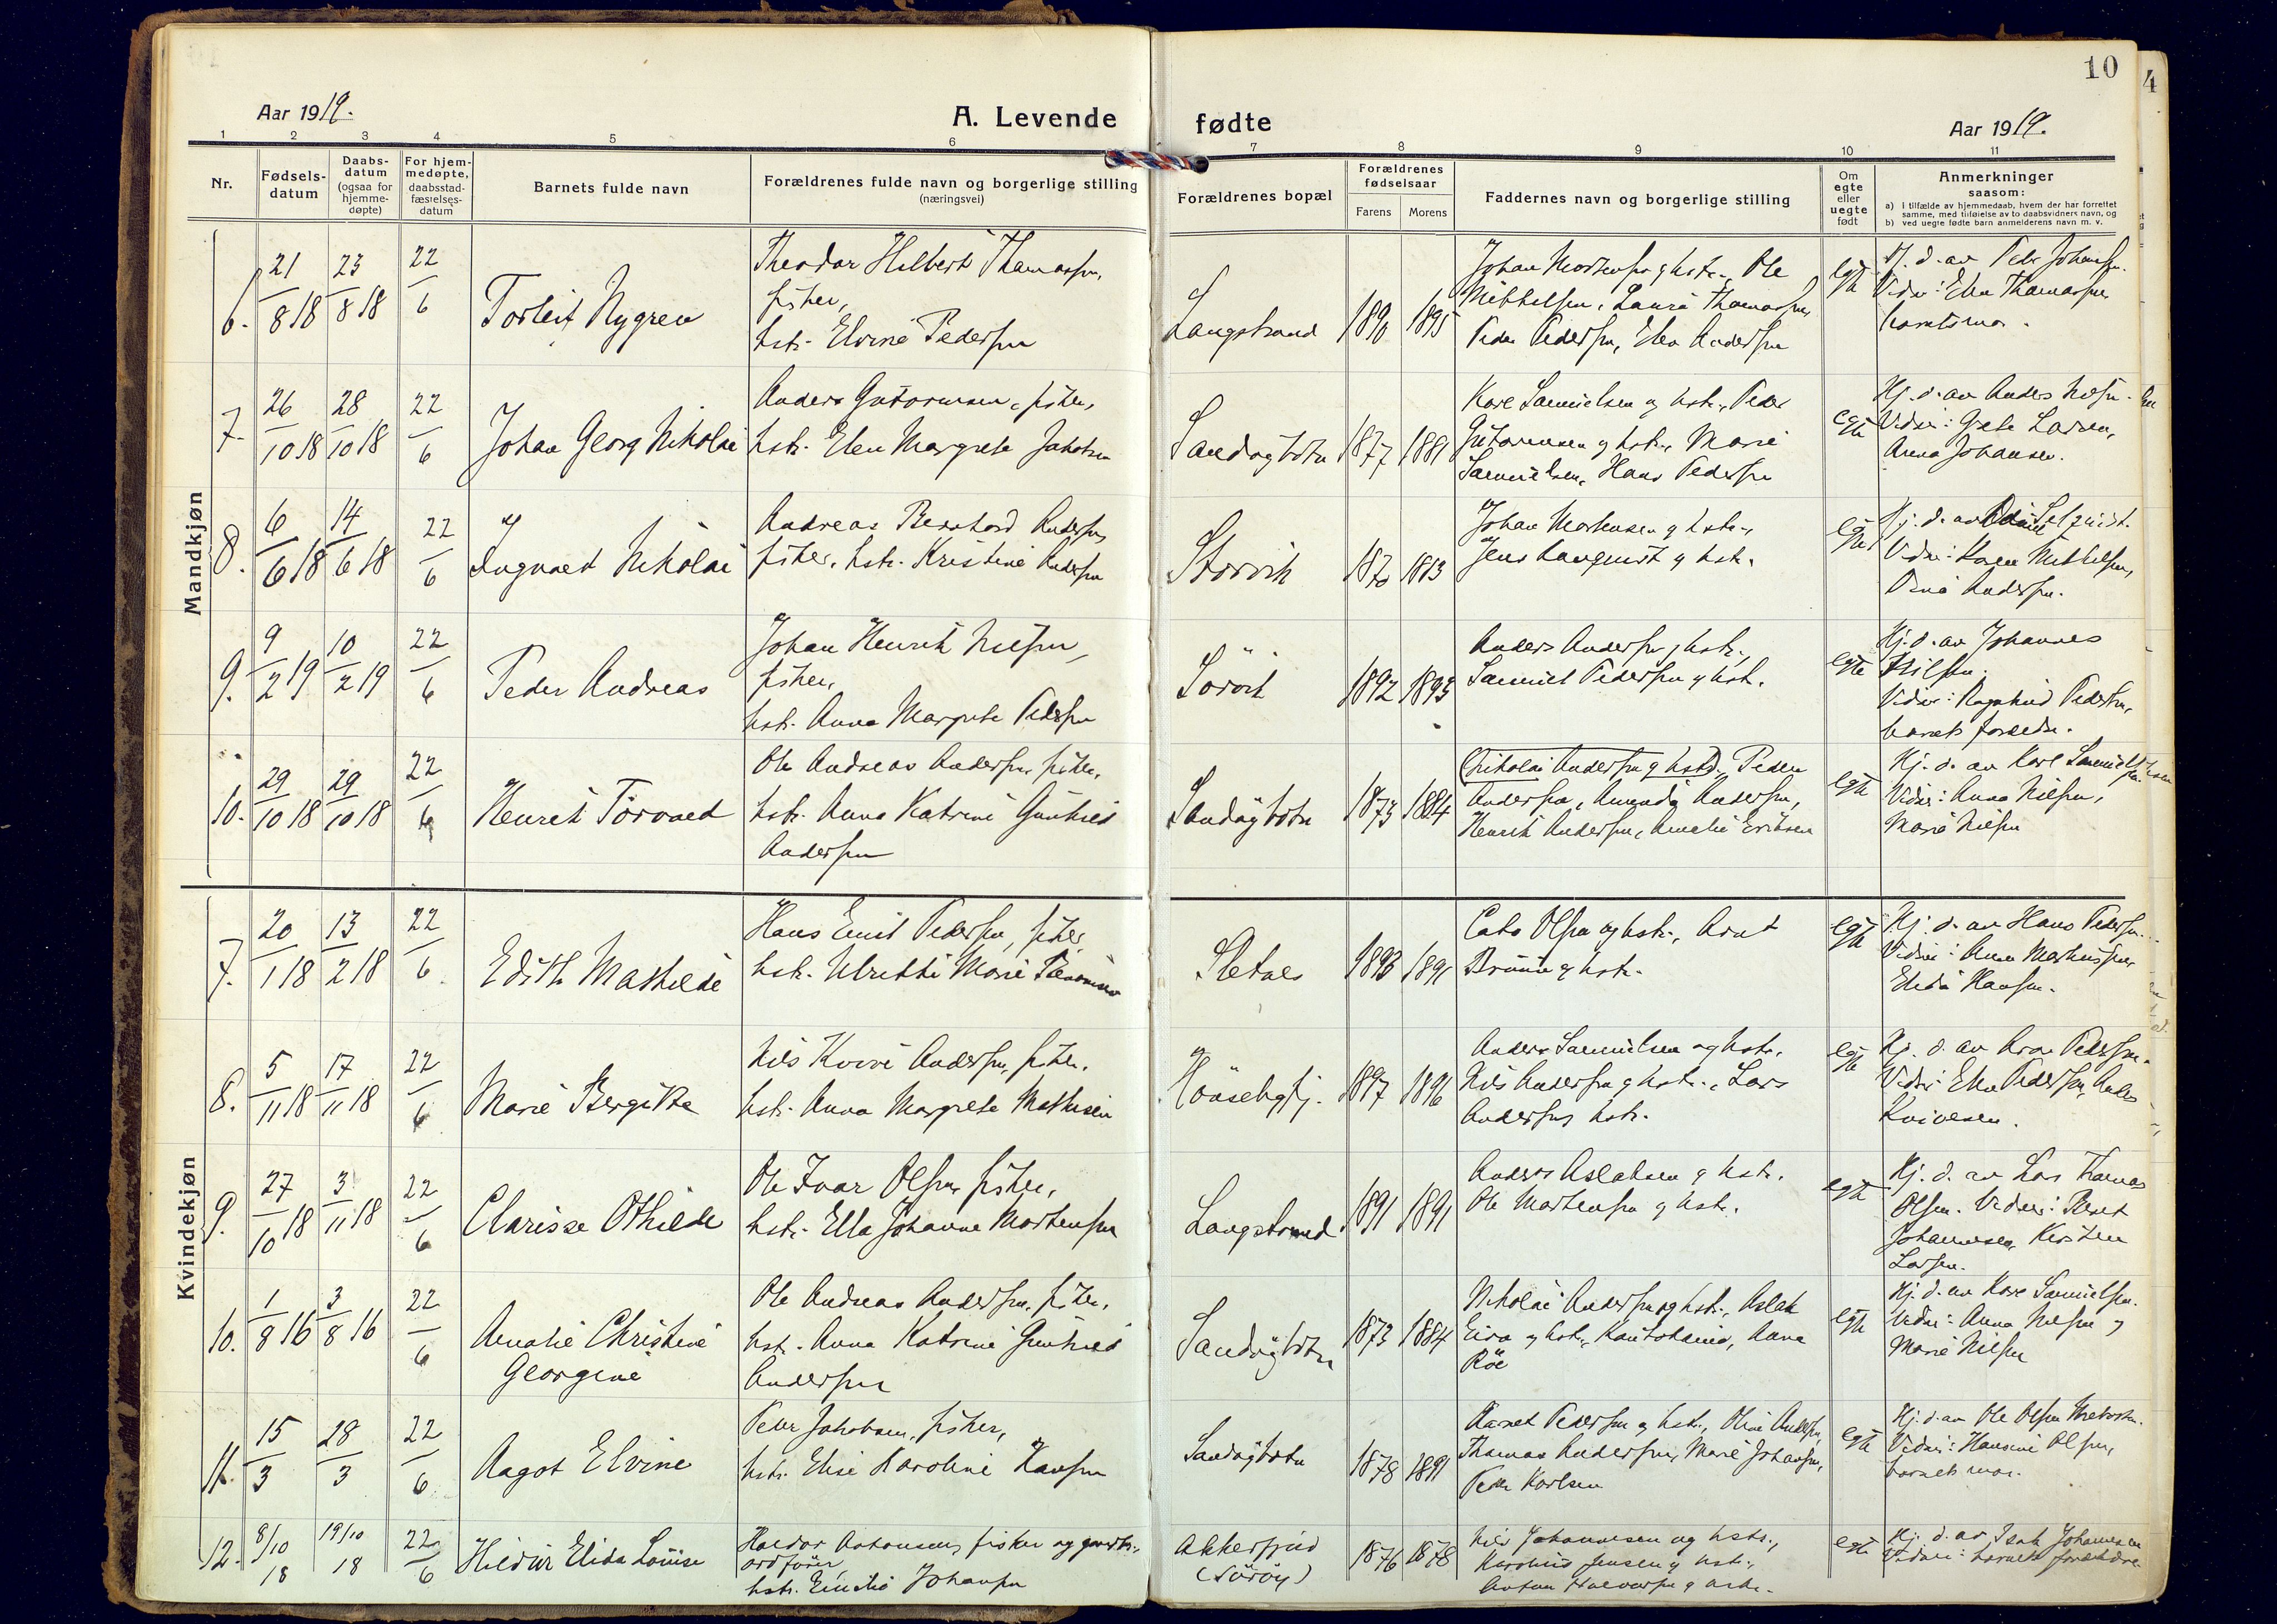 10
4
Aar 1919.
A. Levende
fødte
Aar 1919.
1 2 3 4 5 6 7 8 9 10 11
Nr.
Fødsels-
datum
Daabs-
datum
(ogsaa for
hjemme-
døpte)
For hjem-
medøpte,
daabsstad-
fæstelses-
datum
Barnets fulde navn
Forældrenes fulde navn og borgerlige stilling
(næringsvei)
Forældrenes bopæl
Forældrenes
fødselsaar
Farens Morens
Faddernes navn og borgerlige stilling
Om
egte
eller
uegte
født
Anmerkninger
saasom:
a) i tilfælde av hjemmedaab, hvem der har forrettet
samme, med tilføielse av to daabsvidners navn, og
b) ved uegte fødte barn anmelderens navn m. v.
Mandkjøn
6. 21/8 18 23/8 18 22/6
Torleif Nygren
Theodor Hilbert Thomassen,
fisker,
hstr. Elvine Pedersen
Langstrand 1890 1895
Johan Mortensen og hstr., Ole
Mikkelsen, Laura Thomassen,
Peder Pedersen, Elen Andersen
egte
Hj. d. av Peder Johansen.
Vidner: Elen Thomassen,
barnets mor.
7. 26/10 18 28/10 18 22/6
Johan Georg Nikolai
Anders Guttormsen, fisker,
hstr. Elen Margrete Jakobsen
Sandøybotn 1877 1881
Kare Samuelsen og hstr., Peder
Guttormsen og hstr., Marie
Samuelsen, Hans Pedersen
egte
Hj. d. av Anders Nilsen.
Vidner: Grete Larsen,
Anna Johansen.
8. 6/6 18 14/6 18 22/6
Ingvald Nikolai
Andreas Bernhard Andersen,
fisker, hstr. Kristine Andersen
Storvik 1870 1883
Johan Markusen og hstr.,
Jens Langquist og hstr.
egte
Vidner: Karen Mikkelsen,
Andersen.
9. 9/2 19 10/2 19 22/6
Peder Andreas
Johan Henrik Nilsen,
fisker,
hstr. Anna Margrete Pedersen
Sörvik 1892 1893
Anders Andersen og hstr.,
Samuel Pedersen og hstr.
egte
Hj. d. av Johannes
Nilsen.
Vidner: Ragnhild Pedersen,
barnets forældre.
10. 29/10 18 29/10 18 22/6
Henrik Torvald
Ole Andreas Andersen, fisker,
hstr. Anna Katrine Gunhild
Andersen
Sandøybotn 1873 1884
(Nikolai Andersen og hstr.) Peder
Andersen, Amanda Andersen,
Henrik Andersen, Amalie Eriksen
egte
Hj. d. av Kare Samuelsen
Vidner: Anna Nilsen,
Marie Nilsen
Kvindekjøn
7. 20/1 18 13/2 18 22/6
Edith Mathilde
Hans Emil Pedersen, fisker
hstr. Ulrikke Marie
Sletnes 1893 1891
Cato Olsen og hstr., Arnt
Bruun og hstr.
egte
Hj. d. av Hans Pedersen.
Vidner: Anna Markussen,
Elida Hansen.
8. 5/11 18 17/11 18 22/6
Marie Bergitte
Nils Kvivi Andersen, fisker,
hstr. Anna Margrete Mathisen
Hönsebyfj. 1897 1896
Anders Samuelsen og hstr.,
Nils Andersen og hstr., Lars
Andersens hstr.
egte
Hj. d. av Aron Pedersen.
Vidner: Elen Pedersen, Anders
Kvivesen.
9. 27/10 18 3/11 18 22/6
Clarisse Othilde
Ole Ivar Olsen, fisker,
hstr. Ella Johanne Mortensen
Langstrand 1891 1891
Anders Aslaksen og hstr.
Ole Mortensen og hstr.
egte
Hj. d. av Lars Thomas
Olsen. Vidner: Beret
Johannesen, Kirsten
Larsen.
10. 1/8 16 3/8 16 22/6
Amalie Christine
Georgine
Ole Andreas Andersen, fisker,
hstr. Anna Katrine Gunhild
Andersen
Sandøybotn 1873 1884
Nikolai Andersen og hstr., Aslak
Eira og hstr., Kautokeino, Anna
Röe
egte
Hj. d. av Kare Samuelsen.
Vidner: Anna Nilsen og
Marie Nilsen
11. 15/3 28/3 22/6
Aagot Elvine
Peder Jakobsen, fisker,
hstr. Elise Karoline Hansen
Sandøybotn 1878 1891
Pedersen og hstr., Oline Andersen,
Thomas Andersen, Marie Johansen,
Peder Karlsen
egte
Hj. d. av Ole Olsen
Vidner: Hansine Olsen,
barnets mor.
12. 8/10 18 19/10 18 22/6
Hildur Elida Louise
Haldor Johansen, fisker og
ordfører,
hstr. Emelie Johansen
Akkerfjord
(Sörøy)
1876 1878
Nils Johannesen og hstr.,
Jensen og hstr.,
Anton Halvorsen og hstr.
egte
Hj. d. av Isak Johannesen
Vidner: barnets forældre